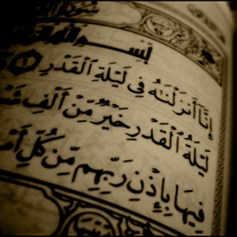 بِسْمِ
إِنَّآ أَنزَلْنَٰهُ فِى لَيْلَةِ ٱلْقَدْرِ ١
لَيْلَةُ ٱلْقَدْرِ خَيْرٌ مِّنْ أَلْفِ
فِيهَا بِإِذْنِ رَبِّهِم مِّن كُلِّ